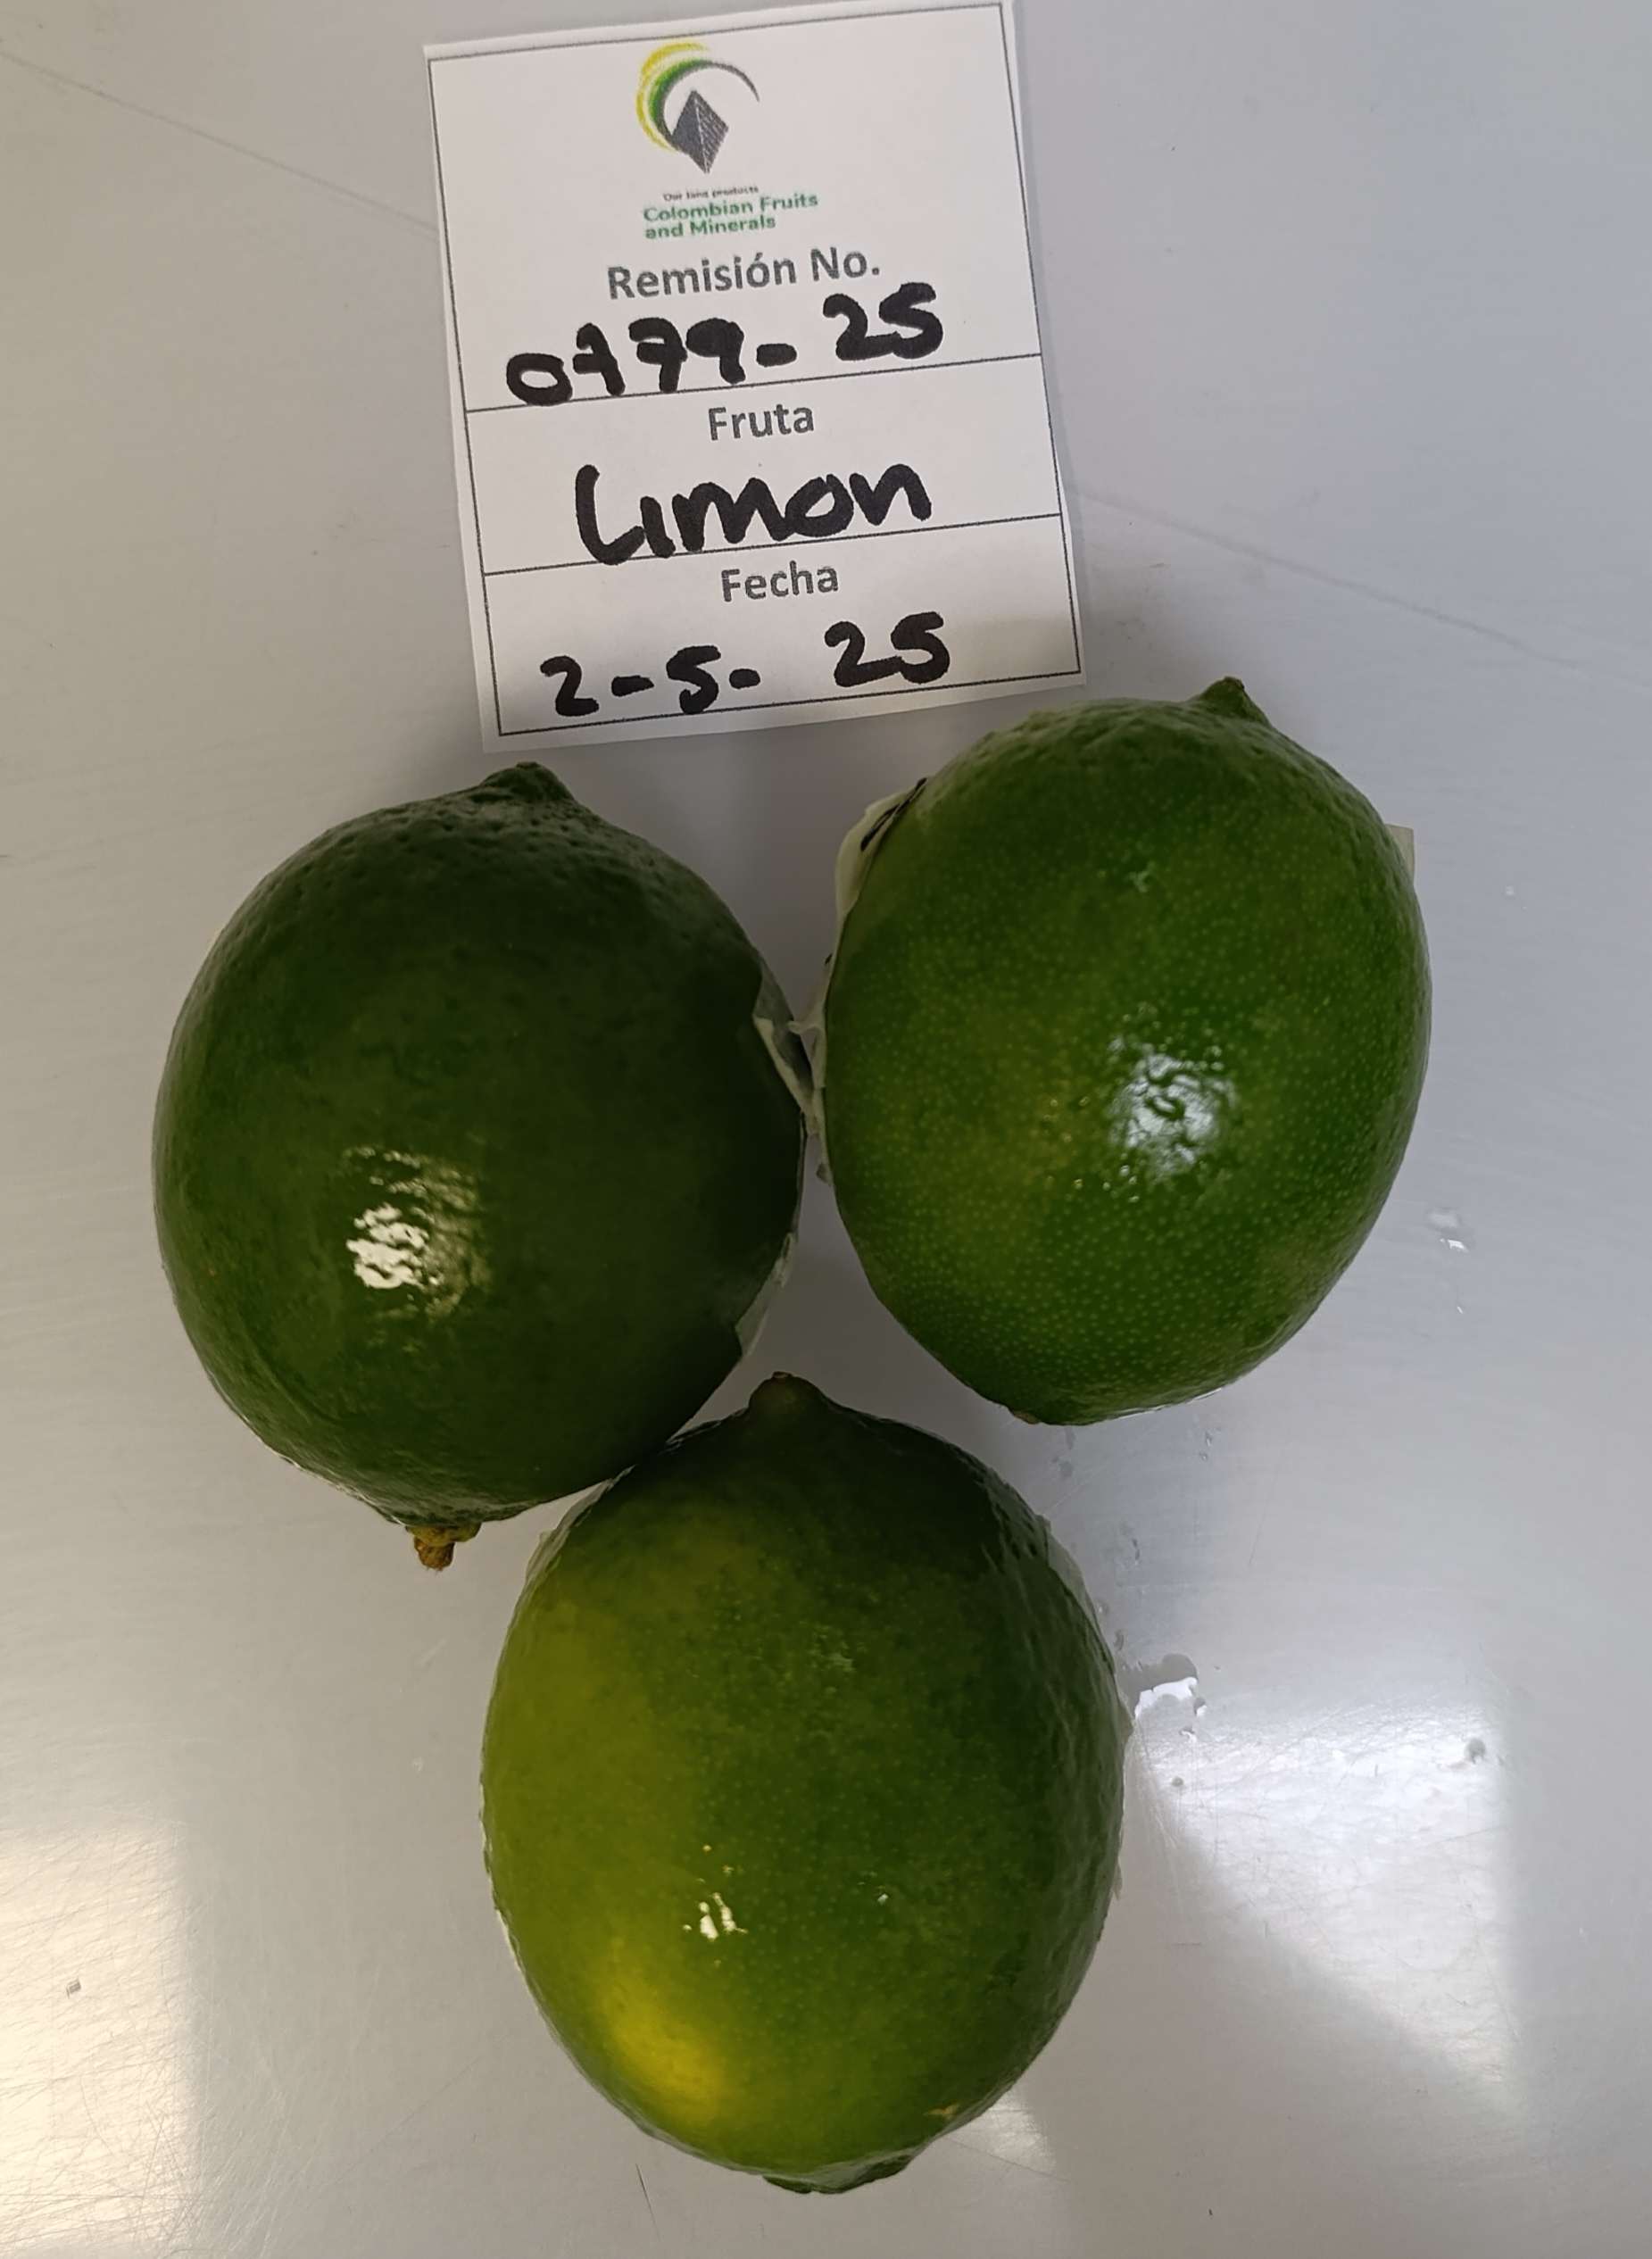 Our land products
Colombian Fruits
and Minerals
Remisión No.
0779-25
Fruta
Limon
Fecha
2-5-25